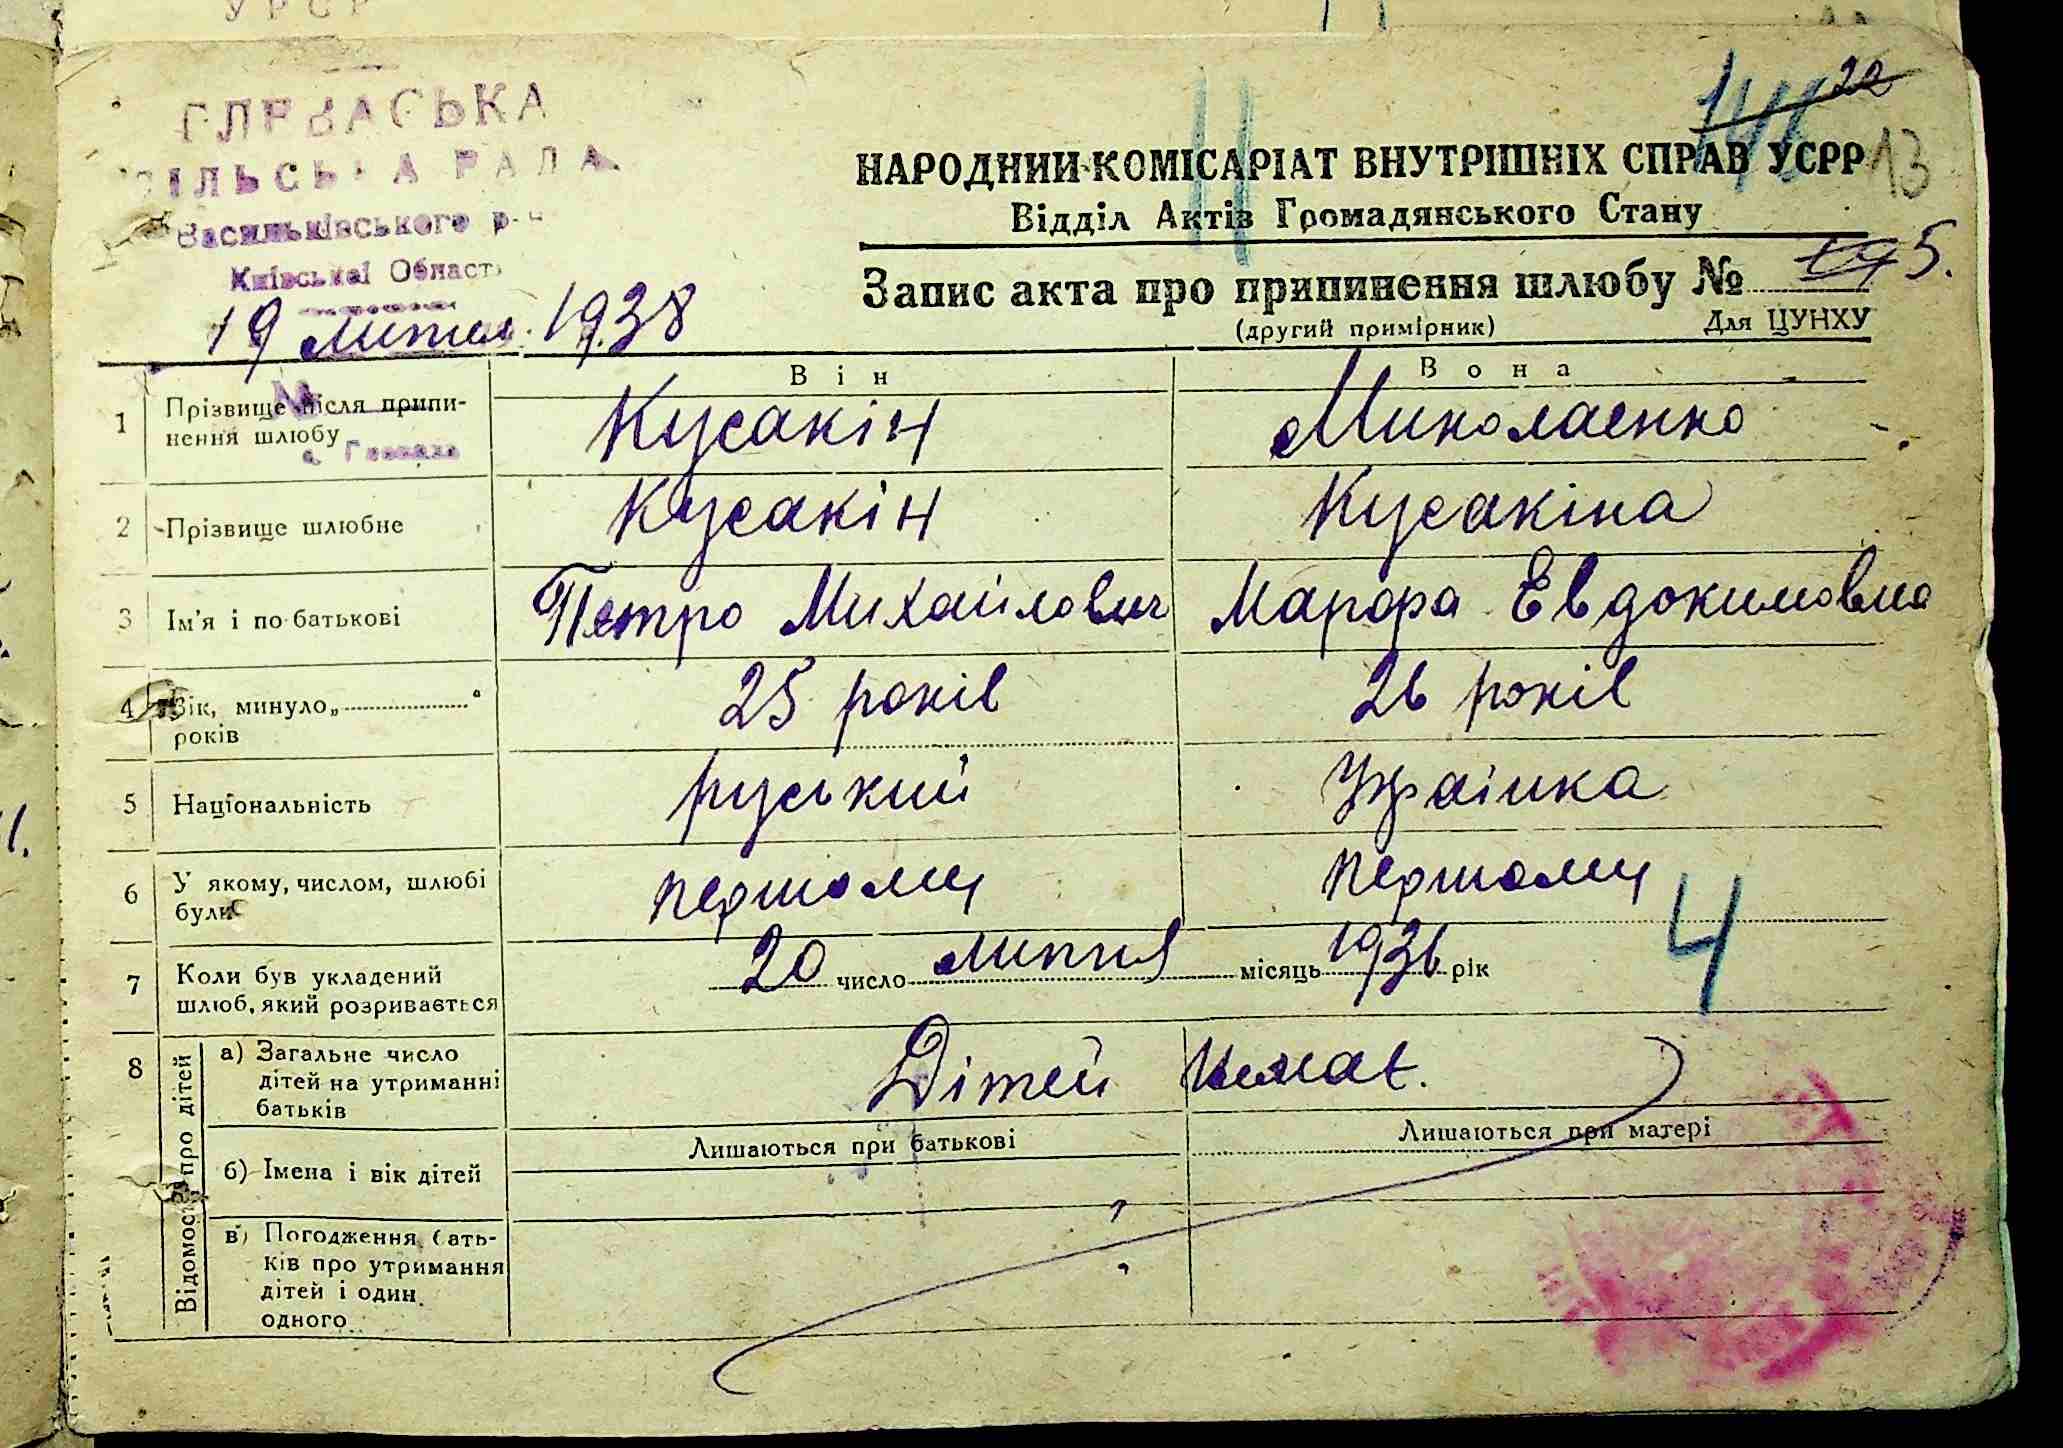 УРСР
ГЛЕВАСЬКА
СІЛЬСЬКА РАДА
Васильківського р-н
Київської Області
19 лютого 1938
20
13
НАРОДНИЙ КОМІСАРІАТ ВНУТРІШНІХ СПРАВ УСРР
Відділ Актів Громадянського Стану
Запис акта про припинення шлюбу № 5.
(другий примірник) Для ЦУНХУ
Він Вона
1 Прізвище після припинення шлюбу Кусакін Миколаенко
2 Прізвище шлюбне Кусакін Кусакіна
3 Ім'я і по-батькові Пєтро Михайлович Марфа Евдокимовна
4 Вік, минуло „ “ років 25 років 26 років
5 Національність руський Українка
6 У якому, числом, шлюбі були першому першому
7 Коли був укладений шлюб, який розривається 20 число липня місяць 1936 рік
4
8 Відомості про дітей
а) Загальне число дітей на утриманні батьків Дітей немає.
Лишаються при батькові Лишаються при матері
б) Імена і вік дітей
в) Погодження батьків про утримання дітей і один одного